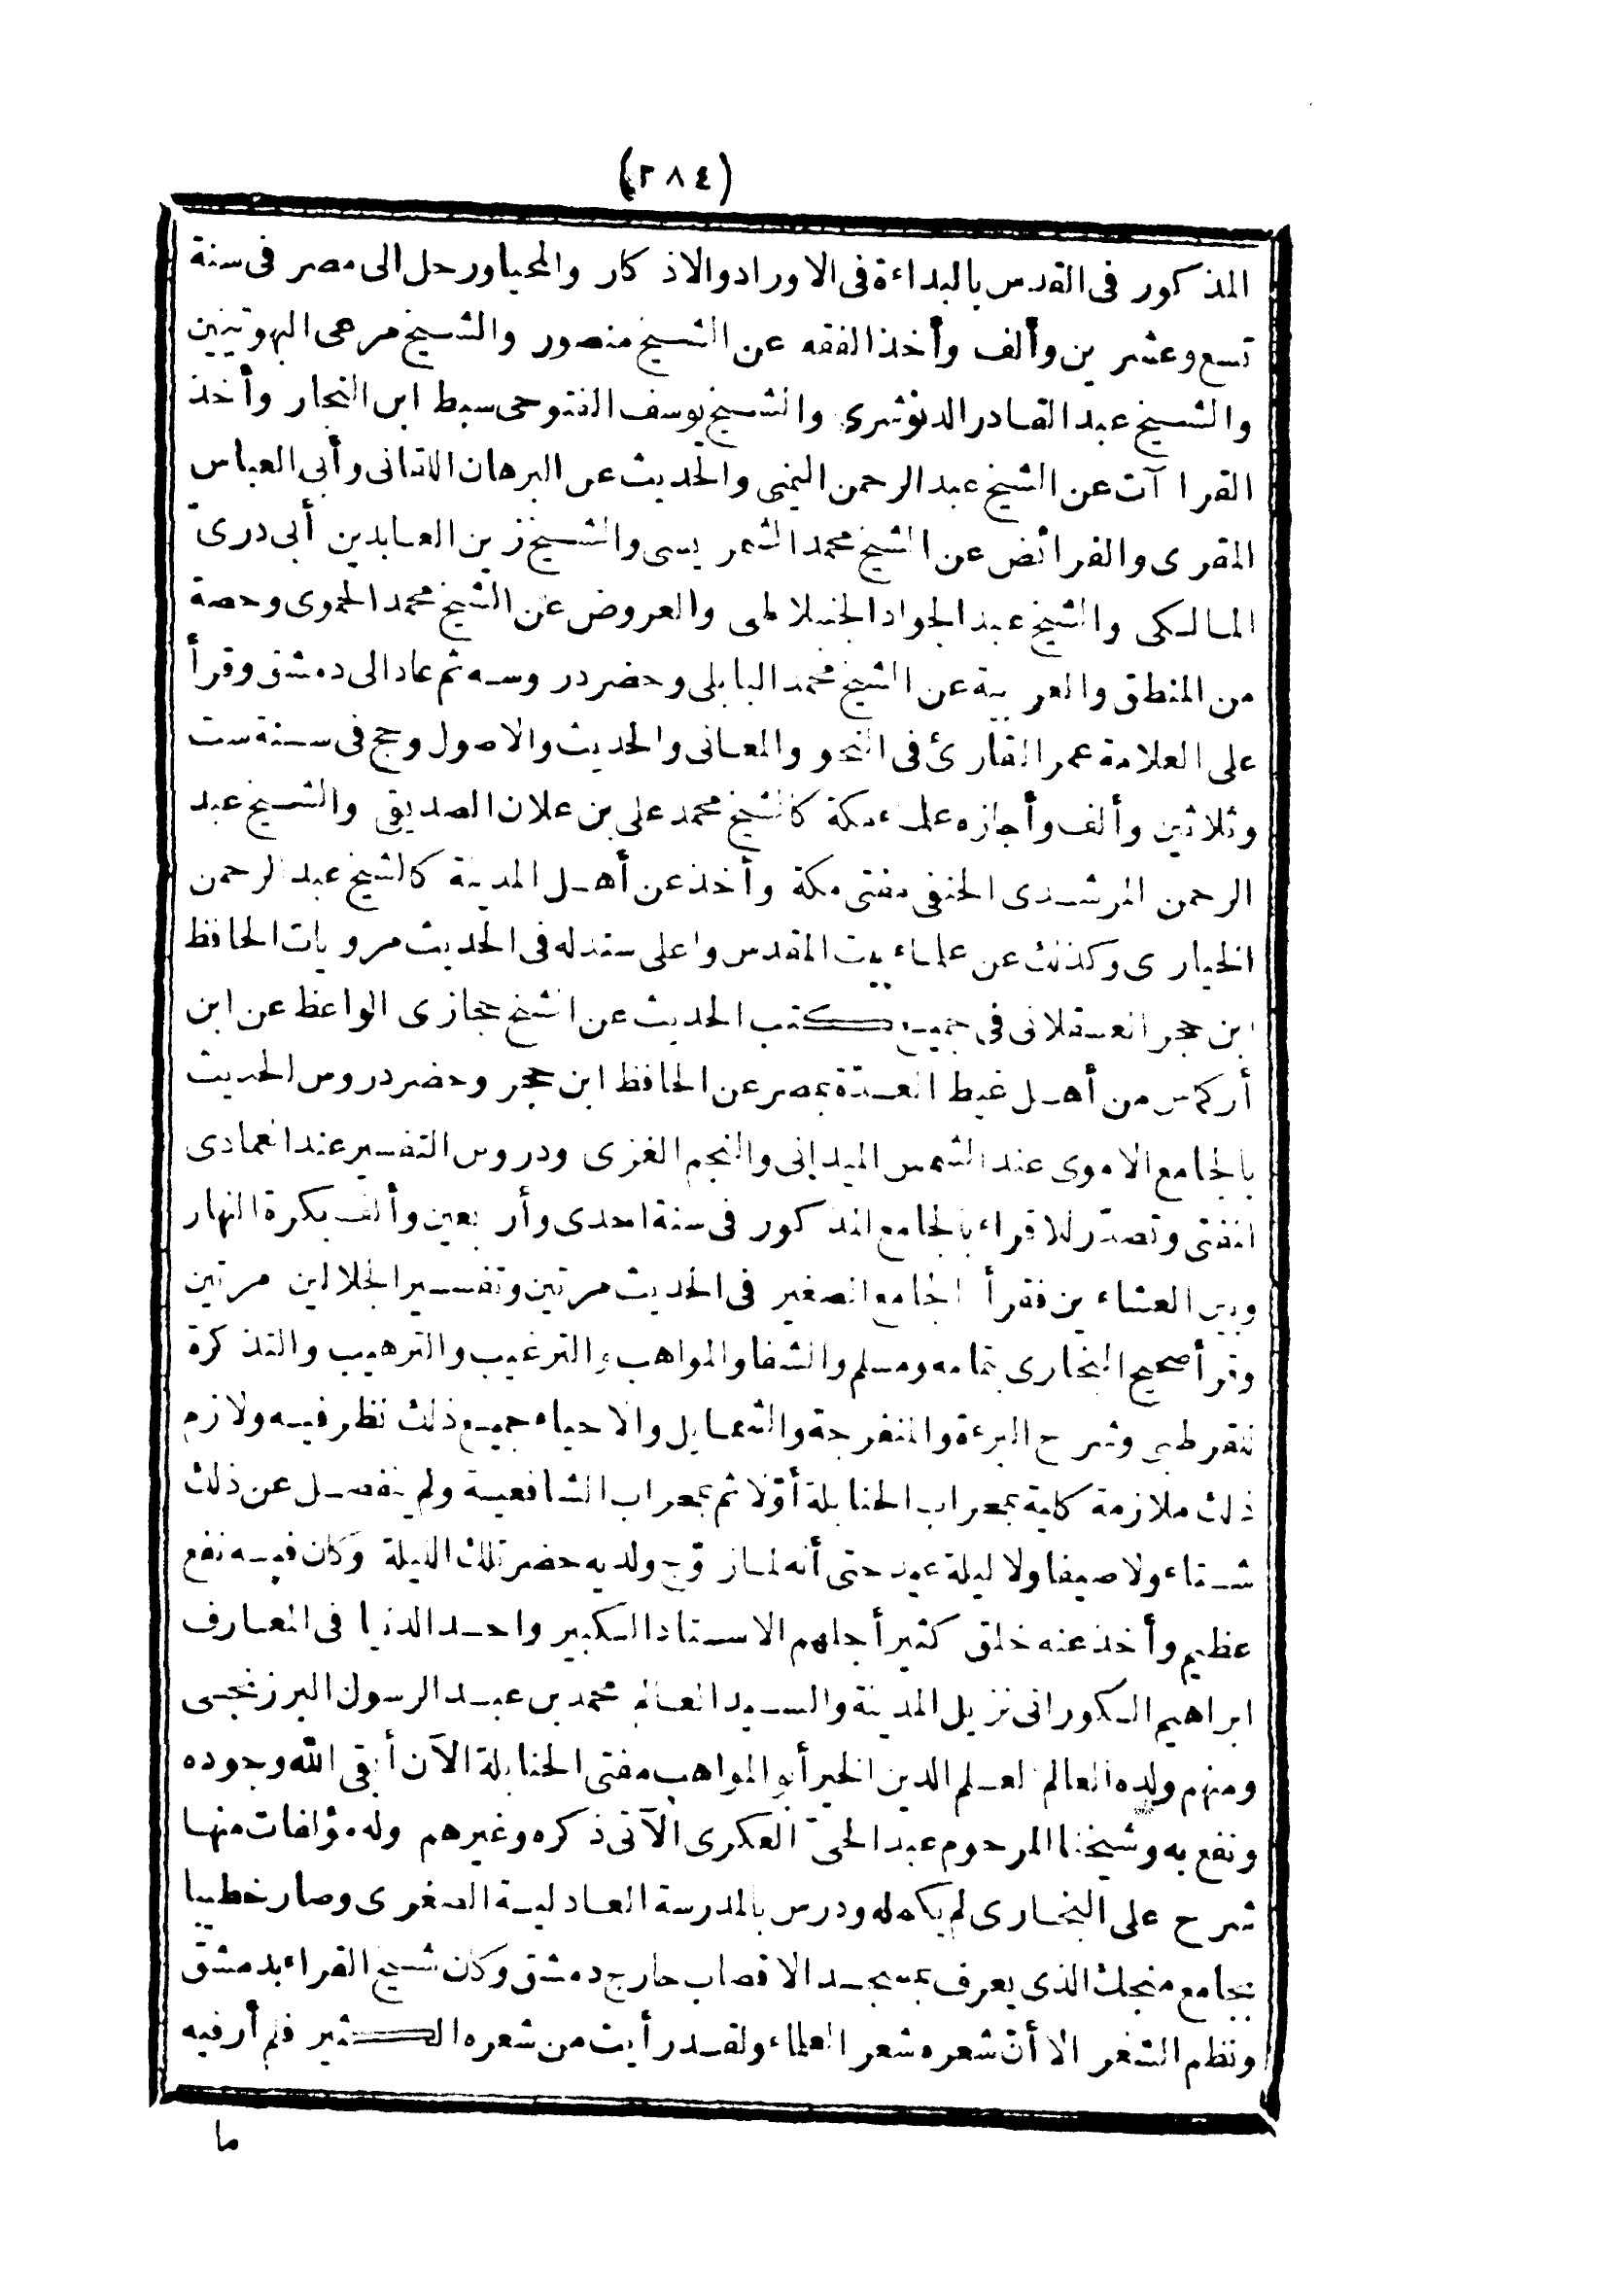 (٢٨٤)
المذكور فى القدس بالبداءة فى الاوراد والاذكار والمحيا ورحل الى مصر فى سنة
تسع وعشرين وألف وأخذ الفقه عن الشيخ منصور والشيخ مرعى البهوتيين
والشيخ عبد القادر الدنوشرى والشيخ يوسف الفتوحى سبط ابن النجار وأخذ
القراآت عن الشيخ عبد الرحمن اليمنى والحديث عن البرهان اللقانى وأبى العباس
المقرى والفرائض عن الشيخ محمد الشمريسى والشيخ زين العابدين أبى درىّ
المالكى والشيخ عبد الجواد الجنبلاطى والعروض عن الشيخ محمد الحموى وحصة
من المنطق والعربية عن الشيخ محمد البابلى وحضر دروسه ثم عاد الى دمشق وقرأ
على العلامة عمر القارئ فى النحو والمعانى والحديث والاصول وحج فى سنة ست
وثلاثين وألف وأجازه علماء مكة كالشيخ محمد على بن علان الصديقى والشيخ عبد
الرحمن المرشدى الحنفى مفتى مكة وأخذ عن أهل المدينة كالشيخ عبد الرحمن
الخيارى وكذلك عن علماء بيت المقدس وأعلى سند له فى الحديث مرويات الحافظ
ابن حجر العسقلانى فى جميع كتب الحديث عن الشيخ حجازى الواعظ عن ابن
أركماس من أهل غيط العدّة بمصر عن الحافظ ابن حجر وحضر دروس الحديث
بالجامع الاموى عند الشمس الميدانى والنجم الغزى ودروس التفسير عند العمادى
المفتى وتصدّر للاقراء بالجامع المذكور فى سنة احدى وأربعين وألف بكرة النهار
وبين العشاءين فقرأ الجامع الصغير فى الحديث مرتين وتفسير الجلالين مرتين
وقرأ صحيح البخارى بتمامه ومسلم والشفا والمواهب والترغيب والترهيب والتذكرة
للقرطبى وشرح البرءة والمنفرجة والشمايل والاحياء جميع ذلك نظر فيه ولازم
ذلك ملازمة كلية بمحراب الحنابلة أوّلا ثم بمحراب الشافعية ولم ينفصل عن ذلك
شتاء ولا صيفا ولا ليلة عيد حتى أنه لما زوّج ولديه حضر تلك الليلة وكان فيه نفع
عظيم وأخذ عنه خلق كثير أجلهم الاستاذ الكبير واحد الدنيا فى المعارف
ابراهيم الكورانى نزيل المدينة والسيد العالم محمد بن عبد الرسول البرزنجى
ومنهم ولده العالم لعلم الدين الخير أبو المواهب مفتى الحنابلة الآن أبقى الله وجوده
ونفع به وشيخنا المرحوم عبد الحىّ العكرى الآتى ذكره وغيرهم وله مؤلفات منها
شرح على البخارى لم يكمله ودرس بالمدرسة العادلية الصغرى وصار خطيبا
بجامع منجك الذى يعرف بمسجد الاقصاب خارج دمشق وكان شيخ القراء بدمشق
ونظم الشعر الا أنّ شعره شعر العلماء ولقد رأيت من شعره الكثير فلم أر فيه
ما